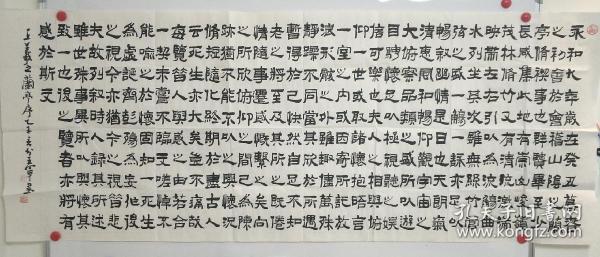 永和九年歲在癸丑暮春
之初會于會稽山陰之蘭
亭脩禊事也群賢畢至少
長咸集此地有崇山峻嶺
茂林脩竹又有清流激湍
映帶左右引以為流觴曲
水列坐其次雖無絲竹管
弦之盛一觴一詠亦足以
暢敘幽情是日也天朗氣
清惠風和暢仰觀宇宙之
大俯察品類之盛所以遊
目騁懷足以極視聽之娛
信可樂也夫人之相與俯
仰一世或取諸懷抱悟言
一室之內或因寄所託放
浪形骸之外雖趣舍萬殊
靜躁不同當其欣於所遇
暫得於己快然自足不知
老之將至及其所之既倦
情隨事遷感慨係之矣向
之所欣俛仰之間以為陳
跡猶不能不以之興懷況
脩短隨化終期於盡古人
云死生亦大矣豈不痛哉
每覽昔人興感之由若合
一契未嘗不臨文嗟悼不
能喻之於懷固知一死生
為虛誕齊彭殤為妄作後
之視今亦猶今之視昔悲
夫故列敘時人錄其所述
雖世殊事異所以興懷其
致一也後之覽者亦將有
感於斯文
王羲之蘭亭序
孔夫子旧书网
www.kongfz.com